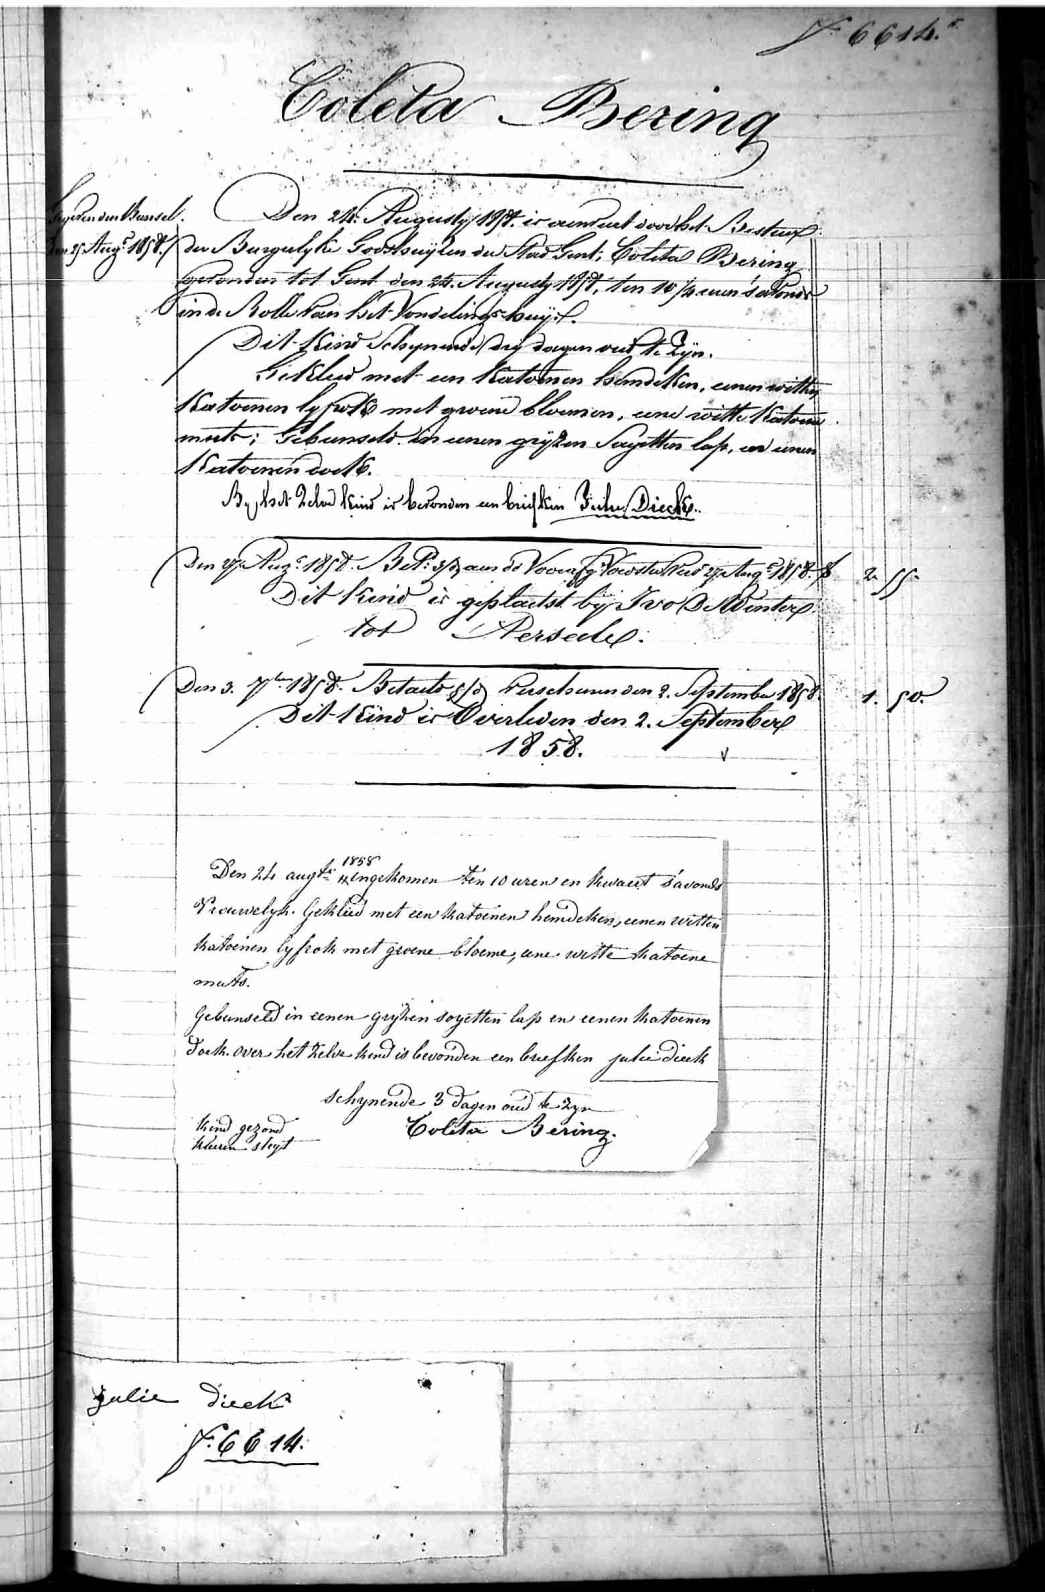 f.º 6614.
Coleta Bering
Den 24 Augusty 1858. is aenveert door het Bestuer
der Burgelyke Godshuyzen der Stad Gent; Coleta Bering
gevonden tot Gent den 24. Augusty 1858, ten 10 1/4 uren s'avonds
in de Rolle van het Vondelingshuys.
Dit Kind Schynende dry dagen oud te Zyn.
Gekleed met een Katoenen hemdeken, eenen witten
Katoenen lyfrok met groene bloemen, eene witte Katoene
muts; Gebunseld in eenen gryzen Sayetten lap, en eenen
Katoenen doek.
By het Zelve Kind is bevonden een briefken Julie Dieck.
Den 27 Augs. 1858. Bet. aen de 27 Augs. 1858. 2 55
Dit Kind is geplaetst by Ivo De Winter
tot Persele.
Den 3. 7ber 1858. Betaelt verschenen den 2. September 1858. 1. 50.
Dit Kind is Overleden den 2. September
1858.
Den 24 augts. 1858 ingekomen ten 10 uren en kwaert s'avonds
Vrouwelyk. Gekleed met een katoenen hemdeken, eenen witten
katoenen lyfrok met groene bloeme, eene witte katoene
muts.
Gebunseld in eenen gryzen soyetten lap en eenen katoenen
doek. over het zelve kind is bevonden een briefken julie dieck
schynende 3 dagen oud te zyn
kind gezond
Coleta Bering.
kleeren slegt
julie dieck
f.º 6614.